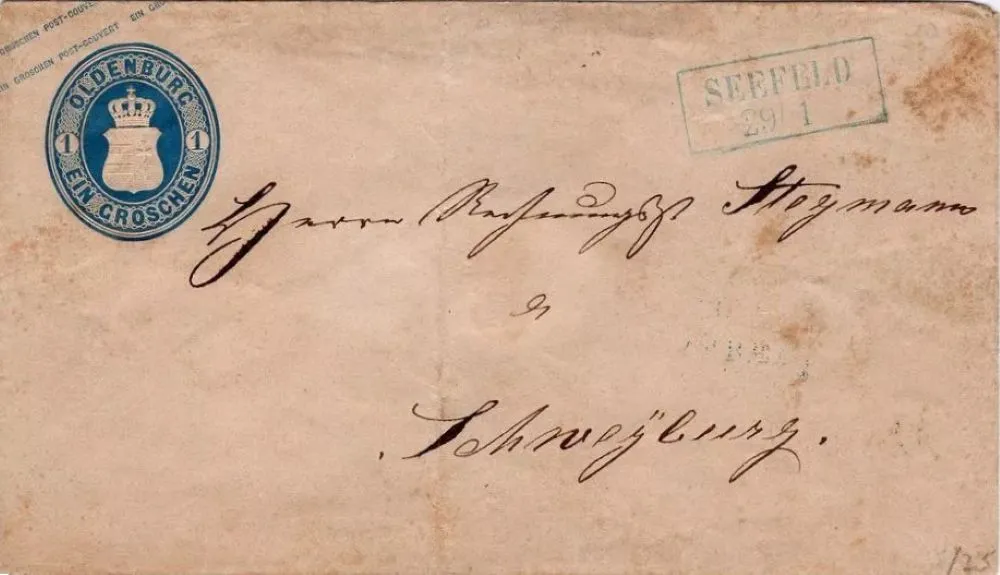 GROSCHEN POST-COUVERT EIN GRO
EIN GROSCHEN POST-COUVERT EIN GROSCHEN
OLDENBURG
1 1
EIN GROSCHEN
SEEFELD
29/1
Herrn Rechnungsst Stegmann
Schweyburg.
125